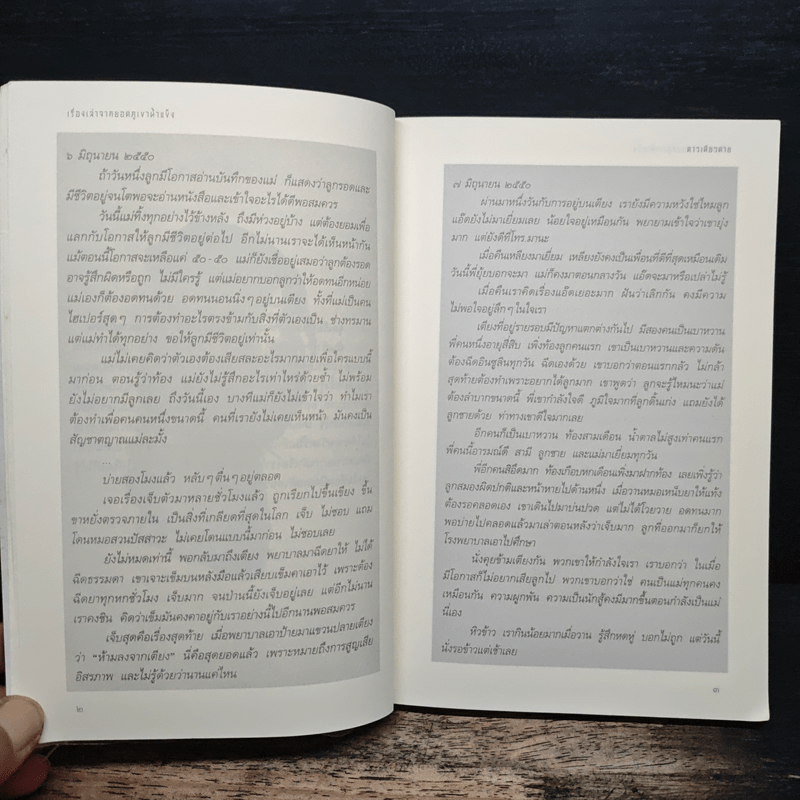 เรื่องเล่าจากยอดภูเขาน้ำแข็ง
๖ มิถุนายน ๒๕๕๐
ถ้าวันหนึ่งลูกมีโอกาสอ่านบันทึกของแม่ ก็แสดงว่าลูกรอดและ
มีชีวิตอยู่จนโตพอจะอ่านหนังสือและเข้าใจอะไรได้ดีพอสมควร
วันนี้แม่ทิ้งทุกอย่างไว้ข้างหลัง ถึงมีห่วงอยู่บ้าง แต่ต้องยอมเพื่อ
แลกกับโอกาสให้ลูกมีชีวิตอยู่ต่อไป อีกไม่นานเราจะได้เห็นหน้ากัน
แม้ตอนนี้โอกาสจะเหลือแค่ ๕๐-๕๐ แม่ก็ยังเชื่ออยู่เสมอว่าลูกต้องรอด
อาจรู้สึกผิดหรือถูก ไม่มีใครรู้ แต่แม่อยากบอกลูกว่าให้อดทนอีกหน่อย
แม่เองก็ต้องอดทนด้วย อดทนนอนนิ่งๆอยู่บนเตียง ทั้งที่แม่เป็นคน
ไฮเปอร์สุดๆ การต้องทำอะไรตรงข้ามกับสิ่งที่ตัวเองเป็น ช่างทรมาน
แต่แม่ทำได้ทุกอย่าง ขอให้ลูกมีชีวิตอยู่เท่านั้น
แม่ไม่เคยคิดว่าตัวเองต้องเสียสละอะไรมากมายเพื่อใครแบบนี้
มาก่อน ตอนรู้ว่าท้อง แม่ยังไม่รู้สึกอะไรเท่าไหร่ด้วยซ้ำ ไม่พร้อม
ยังไม่อยากมีลูกเลย ถึงวันนี้ บางทีแม่ก็ยังไม่เข้าใจว่า ทำไมเรา
ต้องทำเพื่อคนคนหนึ่งขนาดนี้ คนที่เรายังไม่เคยเห็นหน้า มันคงเป็น
สัญชาตญาณแม่ละมั้ง
...
บ่ายสองโมงแล้ว หลับๆตื่นๆอยู่ตลอด
เจอเรื่องเจ็บตัวมาหลายชั่วโมงแล้ว ถูกเรียกไปขึ้นเขียง ขึ้น
ขาหยั่งตรวจภายใน เป็นสิ่งที่เกลียดที่สุดในโลก เจ็บ ไม่ชอบ แถม
โดนหมอสวนปัสสาวะ ไม่เคยโดนแบบนี้มาก่อน ไม่ชอบเลย
ยังไม่หมดเท่านี้ พอกลับมาถึงเตียง พยาบาลมาฉีดยาให้ ไม่ได้
ฉีดธรรมดา เขาเจาะเข็มบนหลังมือแล้วเสียบเข็มคาเอาไว้ เพราะต้อง
ฉีดยาทุกหกชั่วโมง เจ็บมาก จนป่านนี้ยังเจ็บอยู่เลย แต่อีกไม่นาน
เราคงชิน คิดว่าเข็มมันคงคาอยู่กับเราอย่างนี้ไปอีกนานพอสมควร
เจ็บสุดคือเรื่องสุดท้าย เมื่อพยาบาลเอาป้ายมาแขวนปลายเตียง
ว่า “ห้ามลงจากเตียง” นี่คือสุดยอดแล้ว เพราะหมายถึงการสูญเสีย
อิสรภาพ และไม่รู้ด้วยว่านานแค่ไหน
๒
ดารเดียวดาย
๗ มิถุนายน ๒๕๕๐
ผ่านมาหนึ่งวันกับการอยู่บนเตียง เรายังมีความหวังใช่ไหมลูก
แอ๊ดยังไม่มาเยี่ยมเลย น้อยใจอยู่เหมือนกัน พยายามเข้าใจว่าเขายุ่ง
มาก แต่ยังดีที่โทร.มานะ
เมื่อคืนเหลียงมาเยี่ยม เหลียงยังคงเป็นเพื่อนที่ดีที่สุดเหมือนเดิม
วันนี้พี่ยุ้ยบอกจะมา แม่ก็คงมาตอนกลางวัน แอ๊ดจะมาหรือเปล่าไม่รู้
เมื่อคืนเราคิดเรื่องแอ๊ดเยอะมาก ฝันว่าเลิกกัน คงมีความ
ไม่พอใจอยู่ลึกๆในใจเรา
เตียงที่อยู่รายรอบมีปัญหาแตกต่างกันไป มีสองคนเป็นเบาหวาน
พี่คนหนึ่งอายุสี่สิบ เพิ่งท้องลูกคนแรก เขาเป็นเบาหวานและความดัน
ต้องฉีดอินซูลินทุกวัน ฉีดเองด้วย เขาบอกว่าตอนแรกกลัว ไม่กล้า
สุดท้ายต้องทำเพราะอยากได้ลูกมาก เขาพูดว่า ลูกจะรู้ไหมนะว่าแม่
ต้องลำบากขนาดนี้ พี่เขากำลังใจดี ภูมิใจมากที่ลูกดิ้นเก่ง แถมยังได้
ลูกชายด้วย ท่าทางเขาดีใจมากเลย
อีกคนก็เป็นเบาหวาน ท้องสามเดือน น้ำตาลไม่สูงเท่าคนแรก
พี่คนนี้อารมณ์ดี สามี ลูกชาย และแม่มาเยี่ยมทุกวัน
พี่อีกคนสีอืดมาก ท้องเกือบหกเดือนเพิ่งมาฝากท้อง เลยเพิ่งรู้ว่า
ลูกสมองผิดปกติและหน้าหายไปด้านหนึ่ง เมื่อวานหมอเหน็บยาให้แท้ง
ต้องรอคลอดเอง เขาเดินไปมาบ่นปวด แต่ไม่ได้โวยวาย อดทนมาก
พอบ่ายไปคลอดแล้วมาเล่าตอนหลังว่าเจ็บมาก ลูกที่ออกมาก็ยกให้
โรงพยาบาลเอาไปศึกษา
นั่งคุยข้ามเตียงกัน พวกเขาให้กำลังใจเรา เราบอกว่า ในเมื่อ
มีโอกาสก็ไม่อยากเสียลูกไป พวกเขาบอกว่าใช่ คนเป็นแม่ทุกคนคง
เหมือนกัน ความผูกพัน ความเป็นนักสู้คงมีมากขึ้นตอนกำลังเป็นแม่
นี่เอง
หิวข้าว เรากินน้อยมากเมื่อวาน รู้สึกหดหู่ บอกไม่ถูก แต่วันนี้
นั่งรอข้าวแต่เช้าเลย
๓